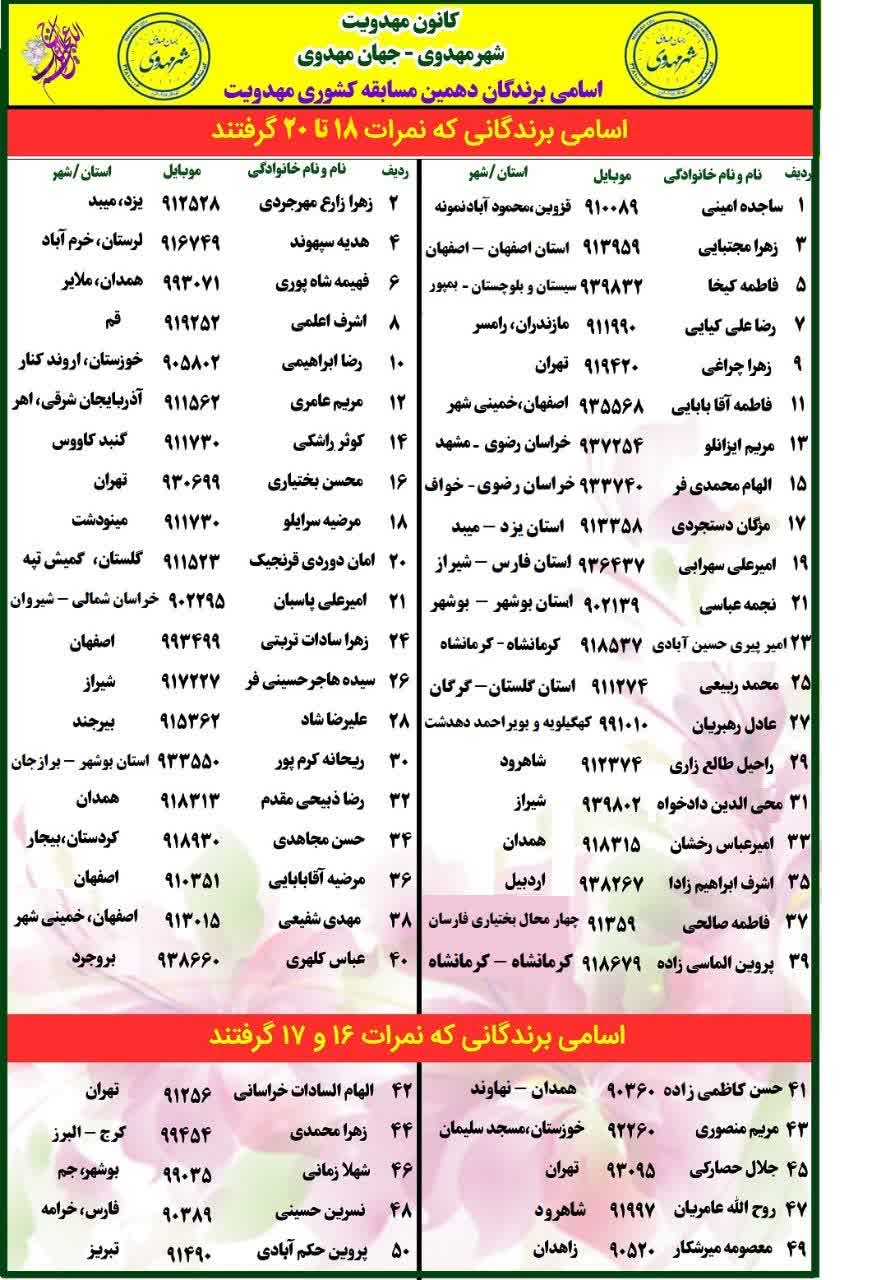 کانون مهدویت
شهرمهدوی - جهان مهدوی
اسامی برندگان دهمین مسابقه کشوری مهدویت
جهان مهدوی
شهر مهدوی
جهان مهدوی
شهر مهدوی
اسامی برندگانی که نمرات ۱۸ تا ۲۰ گرفتند
ردیف نام و نام خانوادگی موبایل استان/شهر
۱ ساجده امینی ۹۱۰۰۸۹ قزوین،محمود آبادنمونه
۳ زهرا مجتبایی ۹۱۳۹۵۹ استان اصفهان - اصفهان
۵ فاطمه کیخا ۹۳۹۸۳۲ سیستان و بلوچستان - بمپور
۷ رضا علی کیایی ۹۱۱۹۹۰ مازندران، رامسر
۹ زهرا چراغی ۹۱۹۴۲۰ تهران
۱۱ فاطمه آقا بابایی ۹۳۵۵۶۸ اصفهان،خمینی شهر
۱۳ مریم ایزانلو ۹۳۷۲۵۴ خراسان رضوی - مشهد
۱۵ الهام محمدی فر ۹۳۳۷۴۰ خراسان رضوی- خواف
۱۷ مژگان دستجردی ۹۱۳۳۵۸ استان یزد - میبد
۱۹ امیرعلی سهرابی ۹۳۶۴۳۷ استان فارس - شیراز
۲۱ نجمه عباسی ۹۰۲۱۳۹ استان بوشهر - بوشهر
۲۳ امیر پیری حسین آبادی ۹۱۸۵۳۷ کرمانشاه- کرمانشاه
۲۵ محمد ربیعی ۹۱۱۲۷۴ استان گلستان- گرگان
۲۷ عادل رهبریان ۹۹۱۰۱۰ کهگیلویه و بویراحمد دهدشت
۲۹ راحیل طالع زاری ۹۱۲۳۷۴ شاهرود
۳۱ محی الدین دادخواه ۹۳۹۸۰۲ شیراز
۳۳ امیرعباس رخشان ۹۱۸۳۱۵ همدان
۳۵ اشرف ابراهیم زادا ۹۳۸۲۶۷ اردبیل
۳۷ فاطمه صالحی ۹۱۳۵۹ چهار محال بختیاری فارسان
۳۹ پروین الماسی زاده ۹۱۸۶۷۹ کرمانشاه - کرمانشاه
ردیف نام و نام خانوادگی موبایل استان/شهر
۲ زهرا زارع مهرجردی ۹۱۲۵۲۸ یزد، میبد
۴ هدیه سپهوند ۹۱۶۷۴۹ لرستان، خرم آباد
۶ فهیمه شاه پوری ۹۹۳۰۷۱ همدان، ملایر
۸ اشرف اعلمی ۹۱۹۲۵۲ قم
۱۰ رضا ابراهیمی ۹۰۵۸۰۲ خوزستان، اروند کنار
۱۲ مریم عامری ۹۱۱۵۶۲ آذربایجان شرقی، اهر
۱۴ کوثر راشکی ۹۱۱۷۳۰ گنبد کاووس
۱۶ محسن بختیاری ۹۳۰۶۹۹ تهران
۱۸ مرضیه سرایلو ۹۱۱۷۳۰ مینودشت
۲۰ امان دوردی قرنجیک ۹۱۱۵۲۳ گلستان، گمیش تپه
۲۱ امیرعلی پاسبان ۹۰۲۲۹۵ خراسان شمالی - شیروان
۲۴ زهرا سادات تربتی ۹۹۳۴۹۹ اصفهان
۲۶ سیده هاجرحسینی فر ۹۱۷۲۲۷ شیراز
۲۸ علیرضا شاد ۹۱۵۳۶۲ بیرجند
۳۰ ریحانه کرم پور ۹۳۳۵۵۰ استان بوشهر - برازجان
۳۲ رضا ذبیحی مقدم ۹۱۸۳۱۳ همدان
۳۴ حسن مجاهدی ۹۱۸۹۳۰ کردستان،بیجار
۳۶ مرضیه آقابابایی ۹۱۰۳۵۱ اصفهان
۳۸ مهدی شفیعی ۹۱۳۰۱۵ اصفهان، خمینی شهر
۴۰ عباس کلهری ۹۳۸۶۶۰ بروجرد
اسامی برندگانی که نمرات ۱۶ و ۱۷ گرفتند
۴۱ حسن کاظمی زاده ۹۰۳۶۰ همدان - نهاوند
۴۳ مریم منصوری ۹۲۲۶۰ خوزستان،مسجد سلیمان
۴۵ جلال حصارکی ۹۳۰۹۵ تهران
۴۷ روح الله عامریان ۹۱۹۹۷ شاهرود
۴۹ معصومه میرشکار ۹۰۵۲۰ زاهدان
۴۲ الهام السادات خراسانی ۹۱۲۵۶ تهران
۴۴ زهرا محمدی ۹۹۴۵۴ کرج - البرز
۴۶ شهلا زمانی ۹۹۰۳۵ بوشهر، جم
۴۸ نسرین حسینی ۹۰۳۸۹ فارس، خرامه
۵۰ پروین حکم آبادی ۹۱۴۹۰ تبریز